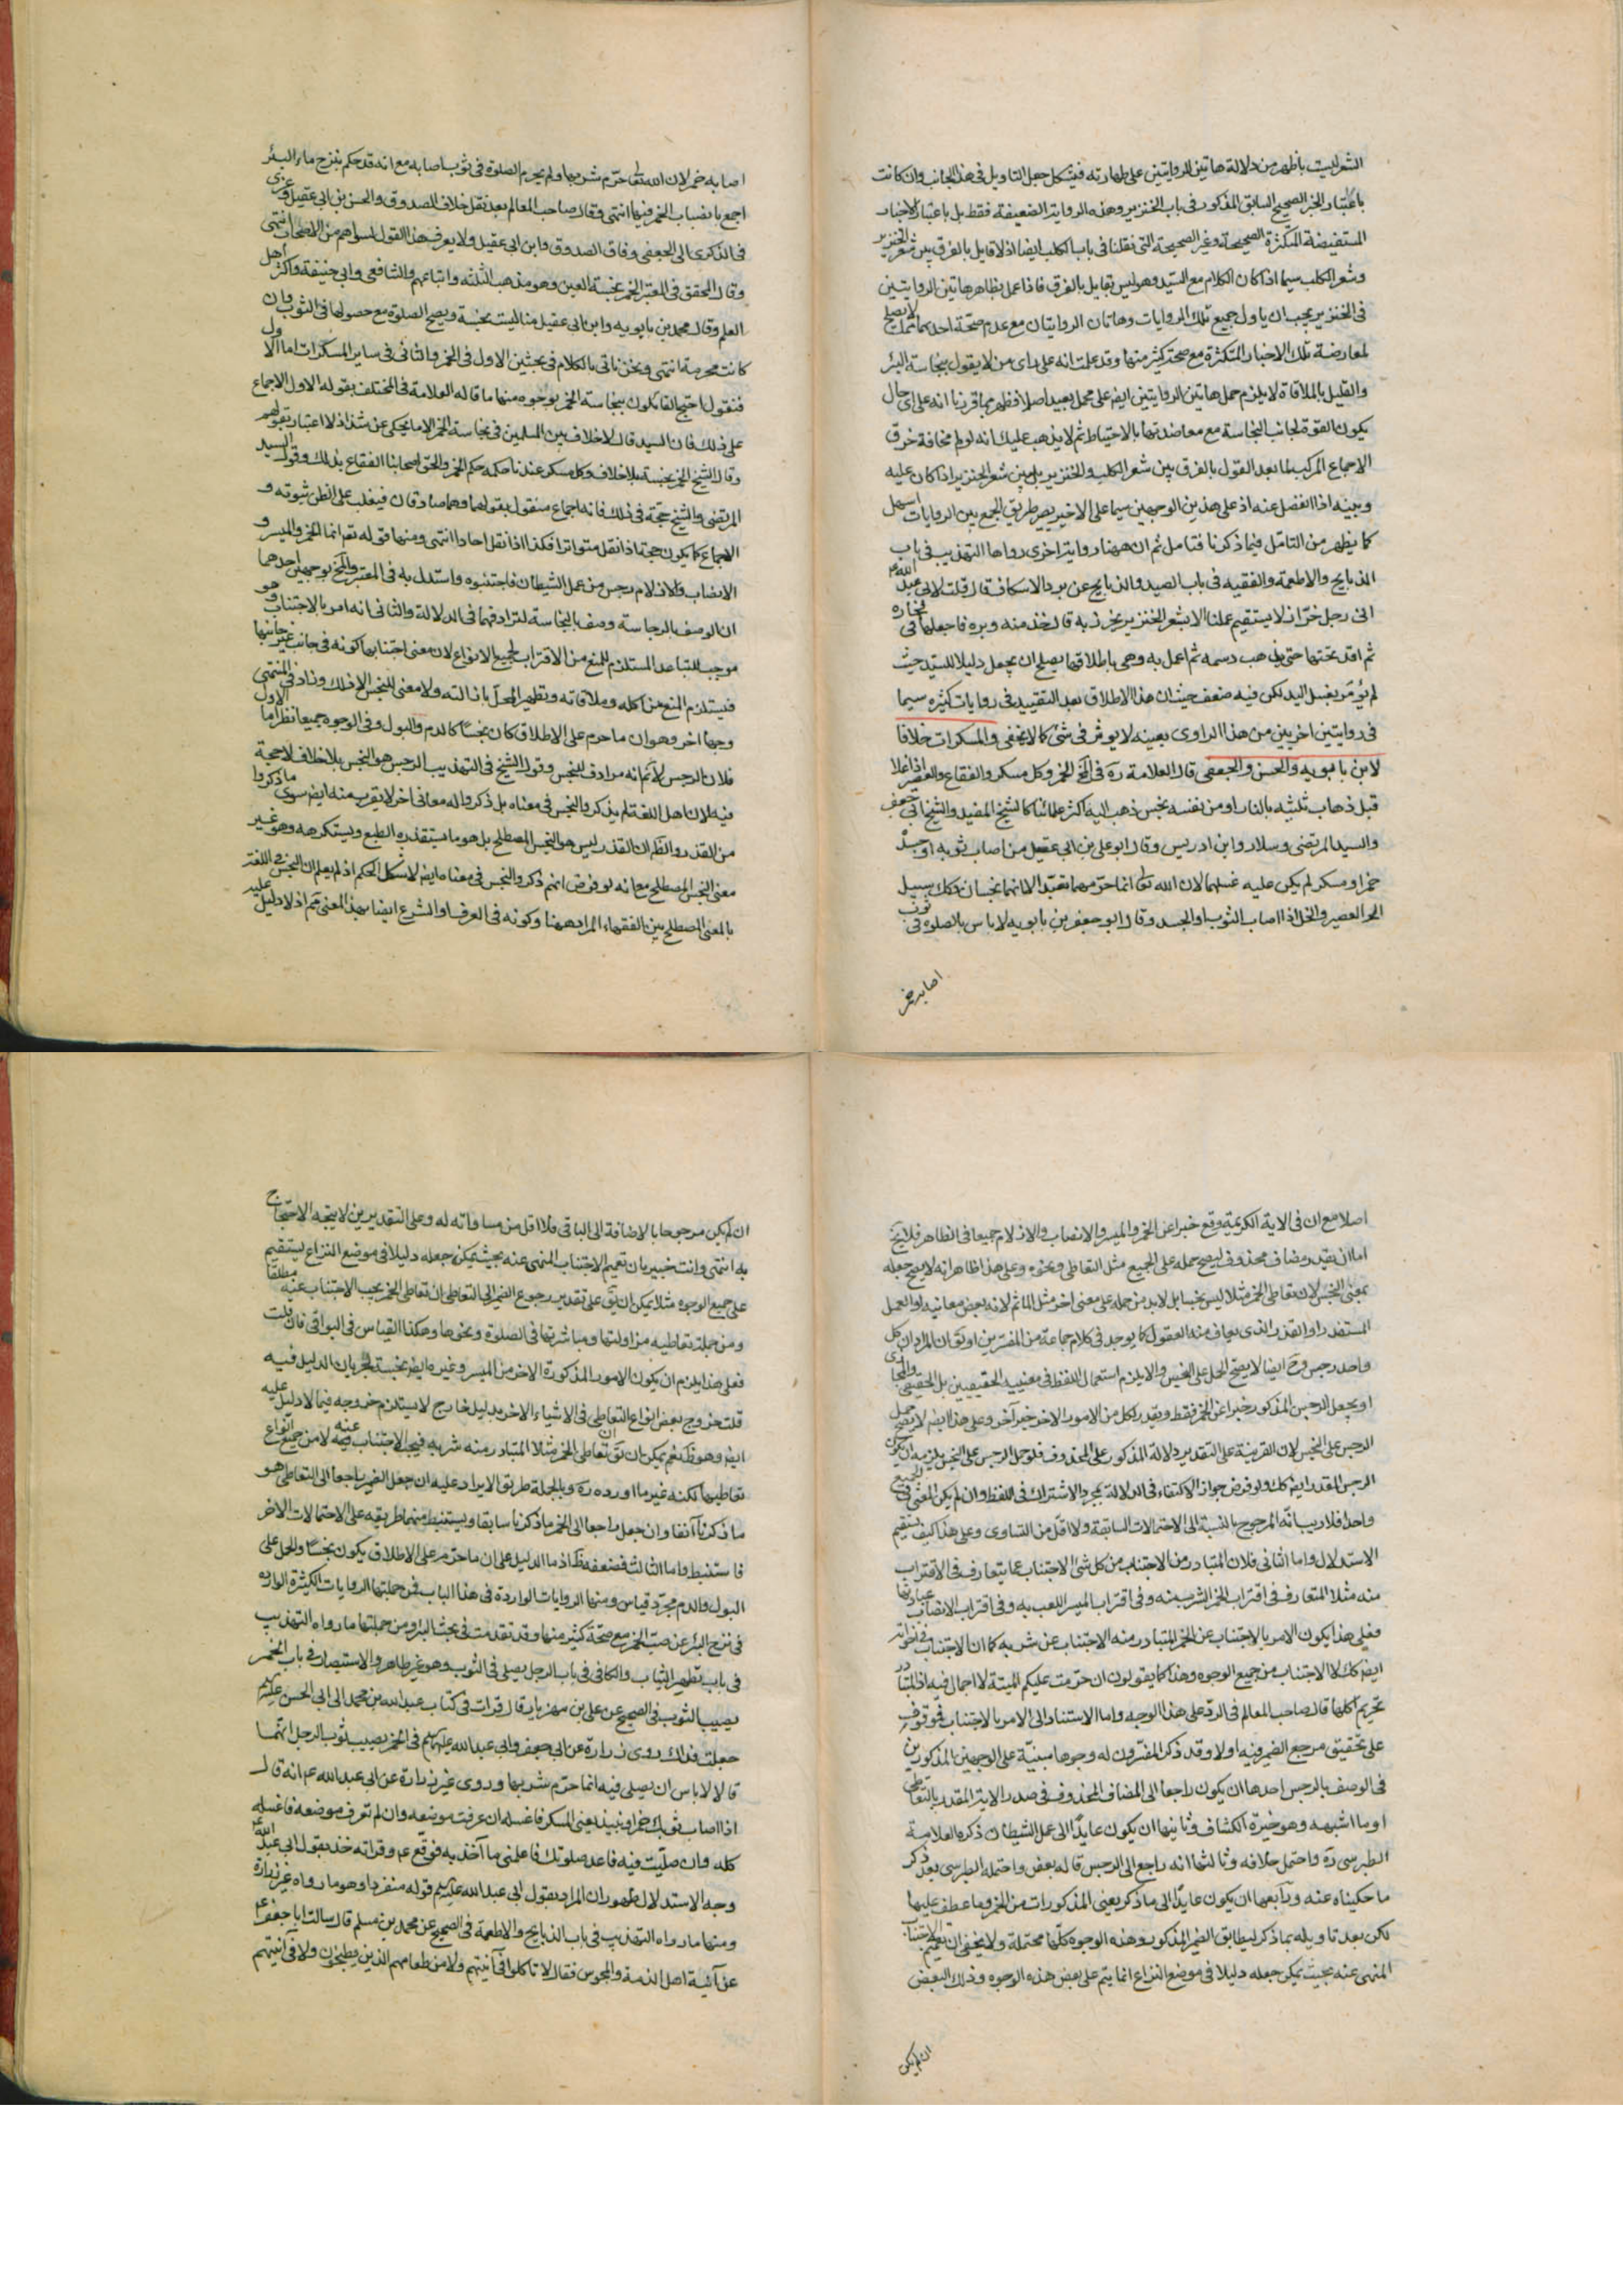 الشعر ليست باظهر من دلالة هاتين الروايتين على طهارته فيشكل جعل التاويل في هذا الجانب وان كانت
باعتبار الخبر الصحيح السابق المذكور في باب الخنزير وهذه الرواية الضعيفة فقط بل باعتبار الاخبار
المستفيضة المتكثرة الصحيحة وغير الصحيحة التي نقلنا في باب الكلب ايضا اذ لا قايل بالفرق بين شعر الخنزير
وشعر الكلب سيما اذا كان الكلام مع السيد وهو ليس بقايل بالفرق فاذا عمل بظاهر هاتين الروايتين
في الخنزير يجب ان ياول جميع تلك الروايات وهاتان الروايتان مع عدم صحة احدهما مما لا يصلح
لمعارضة تلك الاخبار المتكثرة مع صحة كثير منها وقد علمت انه على راى من لا يقول بنجاسة البئر
والقليل بالملاقاة لا يلزم حمل هاتين الروايتين ايضا على محمل بعيد اصلا فظهر بما قررنا انه على اى حال
يكون القوة لجانب النجاسة مع معاضدتها بالاحتياط ثم لا يذهب عليك انه لولم مخافة خرق
الاجماع المركب لما بعد القول بالفرق بين شعر الكلب والخنزير بل بين شعر الخنزير اذا كان عليه
وبينه اذا انفصل عنه اذ على هذين الوجهين سيما على الاخير يصير طريق الجمع بين الروايات اسهل
كما يظهر من التامل فيما ذكرنا فتامل ثم ان ههنا رواية اخرى رواها التهذيب في باب
الذبايح والاطعمة والفقيه في باب الصيد والذبايح عن برد الاسكاف قال قلت لابي عبد الله ع
انى رجل خراز لا يستقيم عملنا الا بشعر الخنزير نخرز به قال خذ منه وبره فاجعلها في فخارة
ثم اوقد تحتها حتى يذهب دسمه ثم اعمل به وهي باطلاقها يصلح ان يجعل دليلا للسيد حيث
لم يؤمر بغسل اليد لكن فيه ضعف حيث ان هذا الاطلاق بعد التقييد في روايات كثيرة سيما
في روايتين اخريين من هذا الراوى بعينه لا يوثر في شئ كما لا يخفى والمسكرات خلافا
لابن بابويه والحسن والجعفي قال العلامة ره في لف الخمر وكل مسكر والفقاع والعصير اذا غلا
قبل ذهاب ثلثيه بالنار او من نفسه نجس ذهب اليه اكثر علمائنا كالشيخ المفيد والشيخ ابي جعفر
والسيد المرتضى وسلار وابن ادريس وقال ابو على بن ابي عقيل من اصاب ثوبه او جسده
خمر او مسكر لم يكن عليه غسلهما لان الله تعالى انما حرمهما تعبدا لا انهما نجسان وكك سبيل
الخمر العصير والخل اذا اصاب الثوب او الجسد وقال ابو جعفر بن بابويه لا باس بالصلوة في ثوب
اصابه خمر
اصابه خمر لان الله تعالى حرم شربها ولم يحرم الصلوة في ثوب اصابه مع انه قد حكم بنزح ماء البئر
اجمع بانصباب الخمر فيها انتهى وقال صاحب المعالم بعد نقل خلاف الصدوق والحسن بن ابي عقيل وعزى
في الذكرى الى الجعفي وفاق الصدوق وابن ابي عقيل ولا يعرف هذا القول لسواهم من الاصحاب انتهى
وقال المحقق في المعتبر الخمر نجسة العين وهو مذهب الثلثة واتباعهم والشافعي وابي حنيفة واكثر اهل
العلم وقال محمد بن بابويه وابن ابي عقيل منا ليست نجسة ويصح الصلوة مع حصولها في الثوب وان
كانت محرمة انتهى ونحن ناتى بالكلام في بحثين الاول في الخمر والثانى في ساير المسكرات اما الاول
فنقول احتج القائلون بنجاسة الخمر بوجوه منها ما قاله العلامة في المختلف بقوله الاول الاجماع
على ذلك فان السيد قال لا خلاف بين المسلمين في نجاسة الخمر الا ما يحكى عن شذاذ لا اعتبار بقولهم
وقال الشيخ الخمر نجسة بلا خلاف وكل مسكر عندنا حكمه حكم الخمر والحق اصحابنا الفقاع بذلك وقول السيد
المرتضى والشيخ حجة في ذلك فانه اجماع منقول بقولهما وهما صادقان فيغلب على الظن ثبوته و
الاجماع كما يكون حجة اذا نقل متواترا فكذا اذا نقل احادا انتهى ومنها قوله تعالى انما الخمر والميسر و
الانصاب والازلام رجس من عمل الشيطان فاجتنبوه واستدل به في المعتبر ولف بوجهين احدهما
ان الوصف بالرجاسة وصف بالنجاسة لترادفهما في الدلالة والثانى انه امر بالاجتناب وهو
موجب للتباعد المستلزم للمنع من الاقتراب لجميع الانواع لان معنى اجتنابها كونه في جانب غير جانبها
فيستلزم المنع من اكله وملاقاته وتطهير المحل بازالته ولا معنى للنجس الا ذلك وزاد في المنتهى
وجها اخر وهو ان ما حرم على الاطلاق كان نجسا كالدم والبول وفى الوجوه جميعا نظر اما الاول
فلان الرجس لا نم انه مرادف للنجس وقول الشيخ في التهذيب الرجس هو النجس بلا خلاف لا حجة
فيه لان اهل اللغة لم يذكروا النجس في معناه بل ذكروا له معانى اخر لا يقرب منه ايضا سوى ما ذكروا
من القذر والظ ان القذر ليس هو النجس المصطلح بل هو ما يستقذره الطبع ويستكرهه وهو غير
معنى النجس المصطلح مع انه لو فرض انهم ذكروا النجس في معناه ايضا لا شكل الحكم اذ لم يعلم ان النجس في اللغة
بالمعنى المصطلح بين الفقهاء المراد ههنا وكونه في العرف او الشرع ايضا بهذا المعنى نم اذ لا دليل عليه
اصلا مع ان في الاية الكريمة وقع خبرا عن الخمر والميسر والانصاب والازلام جميعا في الظاهر فلا يخ
اما ان يقدر مضاف محذوف ليصح حمله على الجميع مثل التعاطى ونحوه وعلى هذا ظاهر انه لا يصح جعله
بمعنى النجس لان تعاطى الخمر مثلا ليس نجسا بل لا بد من حمله على معنى اخر مثل الماثم لانه بعض معانيه او العمل
المستقذر او القذر الذى يعاف منه العقول كما يوجد في كلام جماعة من المفسرين او يق ان المراد ان كل
واحد رجس وح ايضا لا يصح الحمل على النجس والا يلزم استعمال اللفظ في معنييه الحقيقيين بل الحقيقى والمجازى
او يجعل الرجس المذكور خبرا عن الخمر فقط ويقدر لكل من الامور الاخر خبر آخر وعلى هذا ايضا لا يصح حمل
الرجس على النجس لان القرينة على التقدير دلالة المذكور على المحذوف فلو حمل الرجس على النجس يلزم ان يكون
الرجس المقدر ايضا كك ولو فرض جواز الاكتفاء في الدلالة بمجرد الاشتراك في اللفظ وان لم يكن المعنى في الجميع
واحدا فلا ريب انه المرجوح بالنسبة الى الاحتمالات السابقة ولا اقل من التساوى وعلى هذا كيف يستقيم
الاستدلال واما الثانى فلان المتبادر من الاجتناب من كل شئ الاجتناب عما يتعارف في الاقتراب
منه مثلا المتعارف في اقتراب الخمر الشرب منه وفى اقتراب الميسر اللعب به وفى اقتراب الانصاب عبادتها
فعلى هذا يكون الامر بالاجتناب عن الخمر المتبادر منه الاجتناب عن شربه كما ان الاجتناب في اخواته
ايضا كك لا الاجتناب من جميع الوجوه وهذا كما يقولون ان حرمت عليكم الميتة لا اجمال فيه اذ المتبادر
تحريم اكلها قال صاحب المعالم في الرد على هذا الوجه واما الاستناد الى الامر بالاجتناب فموقوف
على تحقيق مرجع الضمير فيه اولا وقد ذكر المفسرون له وجوها مبنية على الوجهين المذكورين
في الوصف بالرجس احدها ان يكون راجعا الى المضاف المحذوف في صدر الاية المقدر بالتعاطى
او ما اشبهه وهو خيرة الكشاف وثانيها ان يكون عايدا الى عمل الشيطان ذكره العلامة
الطبرسى ره واحتمل خلافه وثالثها انه راجع الى الرجس قاله بعض واحتمله الطبرسى بعد ذكر
ما حكيناه عنه ورابعها ان يكون عايدا الى ما ذكر يعنى المذكورات من الخمر وما عطف عليها
لكن بعد تاويله بما ذكر ليطابق الضمير المذكور وهذه الوجوه كلها محتملة ولا يخفى ان تعميم الاجتناب
المنهى عنه بحيث يمكن جعله دليلا في موضع النزاع انما يتم على بعض هذه الوجوه وذلك البعض
ان لم يكن
ان لم يكن مرجوحا بالاضافة الى الباقى فلا اقل من مساواته له وعلى التقديرين لا يتجه الاحتجاج
به انتهى وانت خبير بان تعميم الاجتناب المنهى عنه بحيث يمكن جعله دليلا في موضع النزاع يستقيم
على جميع الوجوه مثلا يمكن ان يق على تقدير رجوع الضمير الى التعاطى ان تعاطى الخمر يجب الاجتناب عنه مطلقا
ومن جملة تعاطيه مزاولتها ومباشرتها في الصلوة ونحوها وهكذا القياس في البواقى فان قلت
فعلى هذا يلزم ان يكون الامور المذكورة الاخر من الميسر وغيره ايضا نجسة لجريان الدليل فيه
قلت خروج بعض انواع التعاطى في الاشياء الاخر بدليل خارج لا يستلزم خروجه فيما لا دليل عليه
ايضا وهو ظ نعم يمكن ان يق ان تعاطى الخمر مثلا المتبادر منه شربه فيجب الاجتناب عنه فيه لا من جميع انواع
تعاطيها لكنه غير ما اورده ره وبالجملة طريق الايراد عليه ان جعل الضمير راجعا الى التعاطى هو
ما ذكرنا آنفا وان جعل راجعا الى الخمر ما ذكرنا سابقا ويستنبط منهما طريقه على الاحتمالات الاخر
فاستنبط واما الثالث فضعفه ظ اذ ما الدليل على ان ما حرم على الاطلاق يكون نجسا والحمل على
البول والدم مجرد قياس ومنها الروايات الواردة في هذا الباب فمن جملتها الروايات الكثيرة الواردة
في نزح البئر عن صب الخمر مع صحة كثير منها وقد تقدمت في بحث البئر ومن جملتها ما رواه التهذيب
في باب تطهير الثياب والكافى في باب الرجل يصلى في الثوب وهو غير طاهر والاستبصار في باب الخمر
يصيب الثوب في الصحيح عن على بن مهزيار قال قرات في كتاب عبد الله بن محمد الى ابي الحسن عليه السلم
جعلت فداك روى زرارة عن ابي جعفر وابي عبد الله عليهما السلم في الخمر يصيب ثوب الرجل انهما
قالا لا باس ان يصلى فيه انما حرم شربها وروى غير زرارة عن ابي عبد الله ع انه قال
اذا اصاب ثوبك خمر او نبيذ يعنى المسكر فاغسله ان عرفت موضعه وان لم تعرف موضعه فاغسله
كله وان صليت فيه فاعد صلوتك فاعلمنى ما آخذ به فوقع ع وقراته خذ بقول ابي عبد الله ع
وجه الاستدلال ظهور ان المراد بقول ابي عبد الله عليه السلم قوله منفردا وهو ما رواه غير زرارة
ومنها ما رواه التهذيب في باب الذبايح والاطعمة في الصحيح عن محمد بن مسلم قال سالت ابا جعفر ع
عن آنية اهل الذمة والمجوس فقال لا تاكلوا في آنيتهم ولا من طعامهم الذين يطبخون ولا في انيتهم